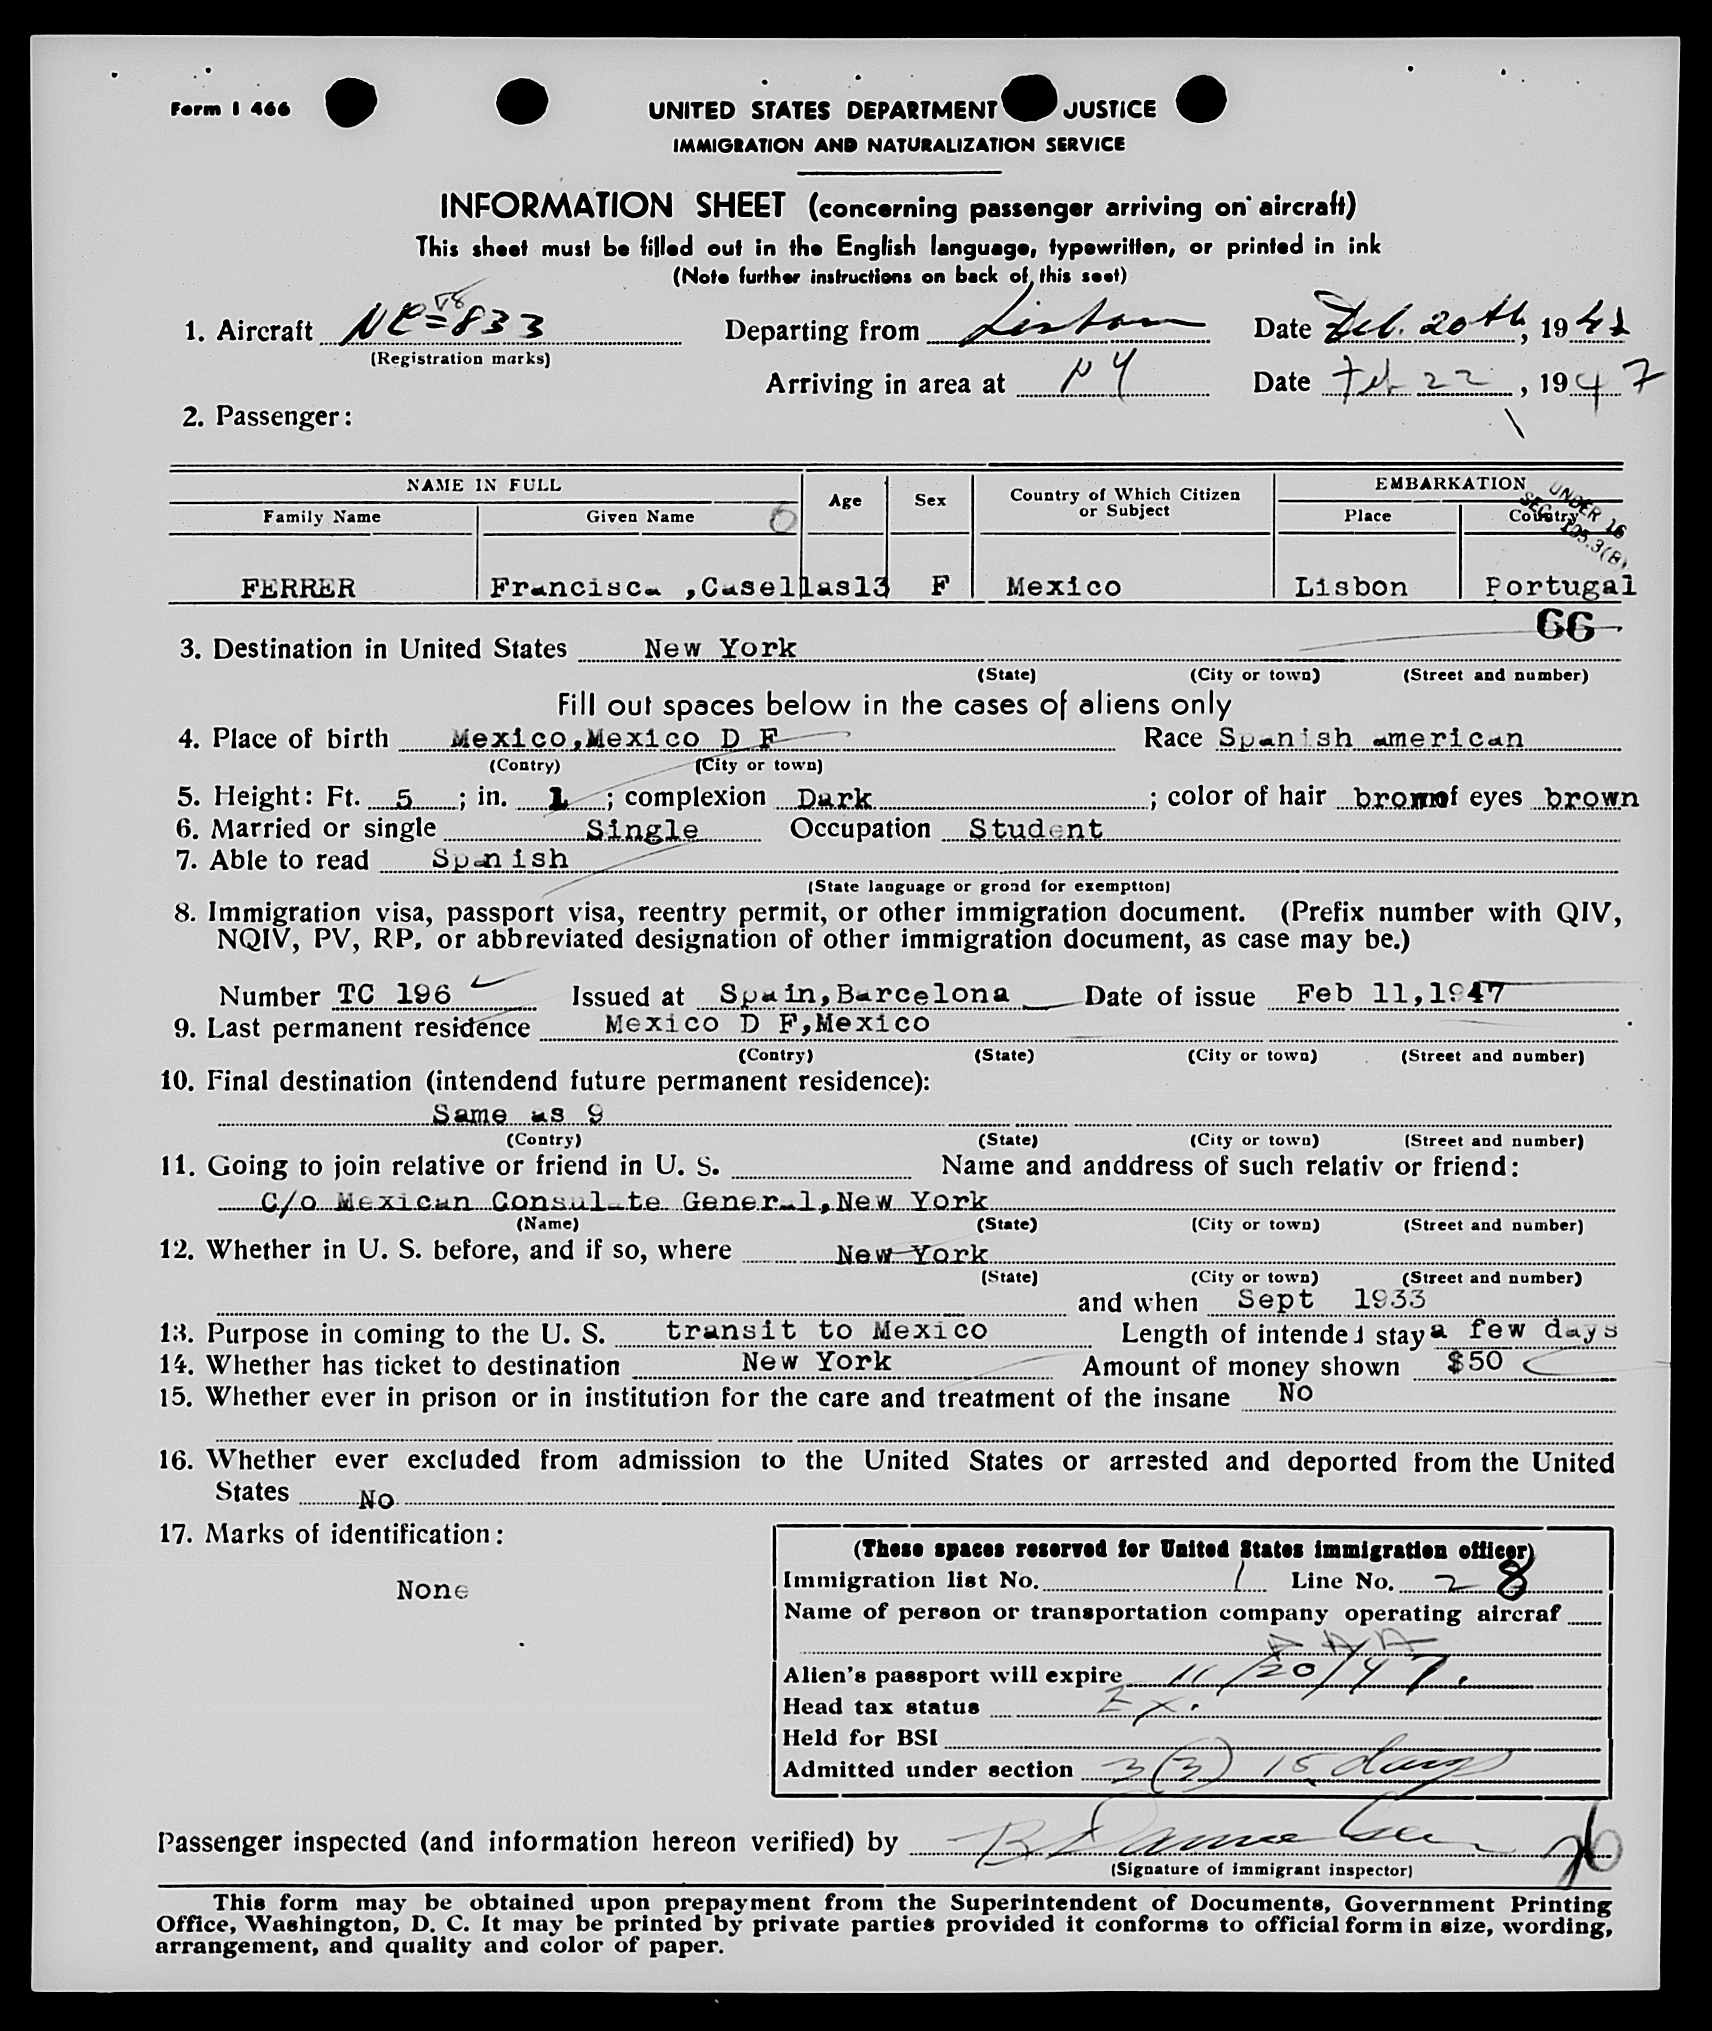 Form I 466
UNITED STATES DEPARTMENT JUSTICE
IMMIGRATION AND NATURALIZATION SERVICE
INFORMATION SHEET (concerning passenger arriving on aircraft)
This sheet must be filled out in the English language, typewritten, or printed in ink
(Note further instructions on back of this seet)
1. Aircraft NC=833 Departing from Lisbon Date Feb. 20th, 19
(Registration marks)
Arriving in area at NY Date Feb 22, 1947
2. Passenger:
NAME IN FULL Age Sex Country of Which Citizen or Subject EMBARKATION
Family Name Given Name Place Country
UNDER 16
SEC. 105.3(B)
FERRER Francisca ,Casellas13 F Mexico Lisbon Portugal
GG
3. Destination in United States New York
(State) (City or town) (Street and number)
Fill out spaces below in the cases of aliens only
4. Place of birth Mexico,Mexico D F Race Spanish american
(Contry) (City or town)
5. Height: Ft. 5 ; in. 1 ; complexion Dark ; color of hair brown of eyes brown
6. Married or single Single Occupation Student
7. Able to read Spanish
(State language or grond for exemptton)
8. Immigration visa, passport visa, reentry permit, or other immigration document. (Prefix number with QIV,
NQIV, PV, RP, or abbreviated designation of other immigration document, as case may be.)
Number TC 196 Issued at Spain,Barcelona Date of issue Feb 11,1947
9. Last permanent residence Mexico D F,Mexico
(Contry) (State) (City or town) (Street and number)
10. Final destination (intendend future permanent residence):
Same as 9
(Contry) (State) (City or town) (Street and number)
11. Going to join relative or friend in U. S. Name and anddress of such relativ or friend:
C/o Mexican Consulate General,New York
(Name) (State) (City or town) (Street and number)
12. Whether in U. S. before, and if so, where New York
(State) (City or town) (Street and number)
and when Sept 1933
13. Purpose in coming to the U. S. transit to Mexico Length of intended stay a few days
14. Whether has ticket to destination New York Amount of money shown $50
15. Whether ever in prison or in institution for the care and treatment of the insane No
16. Whether ever excluded from admission to the United States or arrested and deported from the United
States No
17. Marks of identification:
None
(These spaces reserved for United States immigration officer)
Immigration list No. 1 Line No. 2 8
Name of person or transportation company operating aircraf
PAA
Alien's passport will expire 11/20/47.
Head tax status Ex.
Held for BSI
Admitted under section 3(3) 15 days
Passenger inspected (and information hereon verified) by
(Signature of immigrant inspector)
This form may be obtained upon prepayment from the Superintendent of Documents, Government Printing
Office, Washington, D. C. It may be printed by private parties provided it conforms to official form in size, wording,
arrangement, and quality and color of paper.